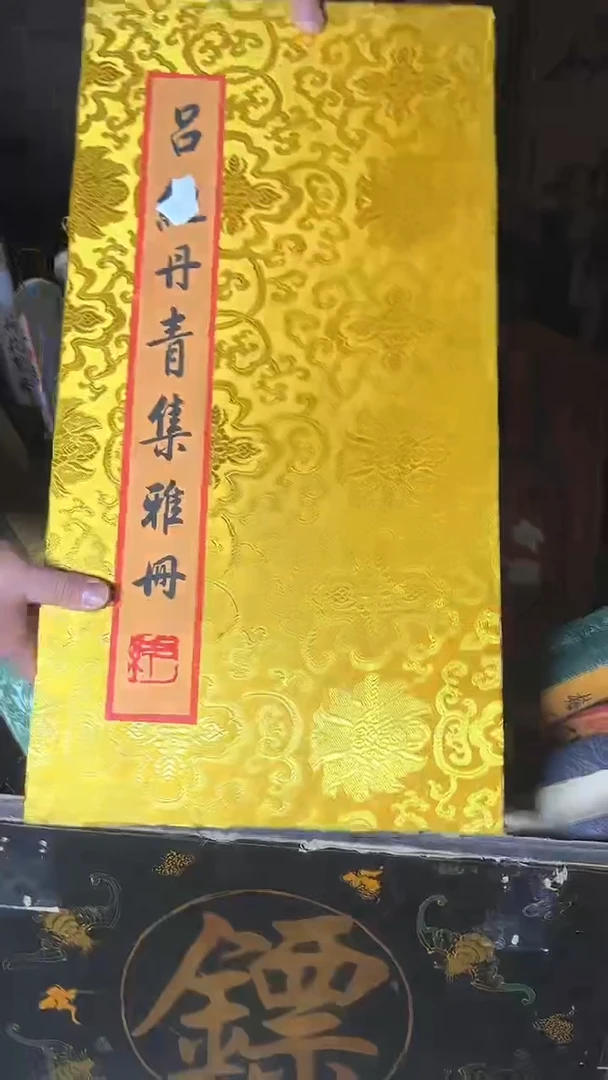 吕
丹青集雅冊
鏢